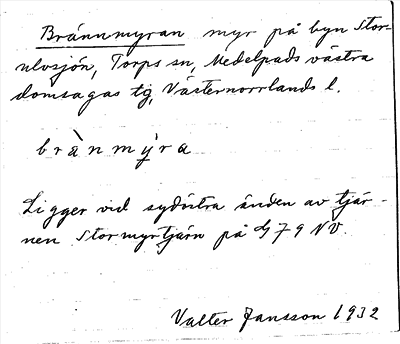 Brännmyran myr på byn Stor-
ulvsjön, Torps sn, Medelpads västra
domsagas tg, Västernorrlands l.
brànmy̆ra
Ligger vid sydöstra änden av tjär-
nen Stormyrtjärn på G79 NV.
Valter Jansson 1932